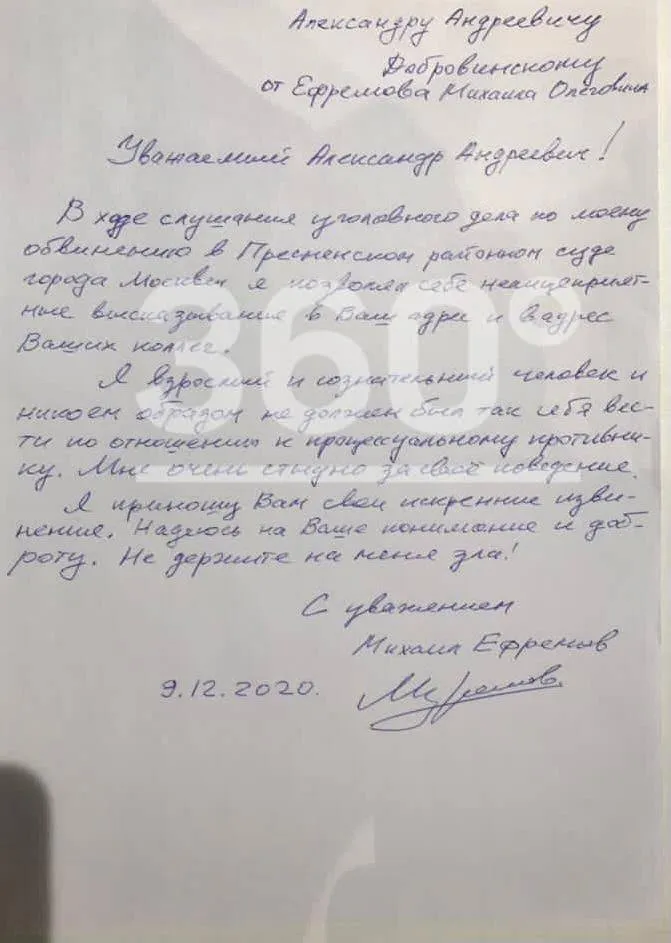 Александру Андреевичу
Добровинскому
от Ефремова Михаила Олеговича
Уважаемый Александр Андреевич!
В ходе слушания уголовного дела по моему
обвинению в Пресненском районном суде
города Москвы я позволял себе нелицеприят-
ные высказывание в Ваш адрес и в адрес
Ваших коллег.
Я взрослый и сознательный человек и
никоем образом не должен был так себя вес-
ти по отношению к процессуальному противни-
ку. Мне очень стыдно за своё поведение.
Я приношу Вам свои искренние изви-
нение. Надеюсь на Ваше понимание и доб-
роту. Не держите на меня зла!
С уважением
Михаил Ефремов
9.12.2020.
360°